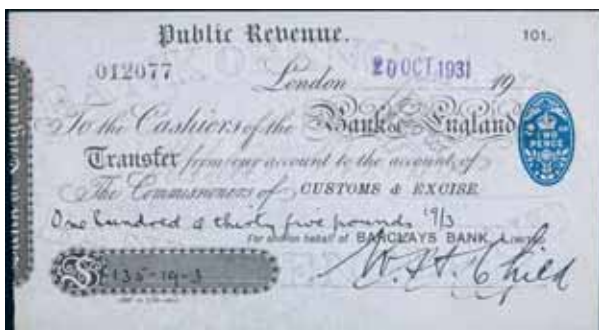 Public Revenue. 101.
012077 London 20 OCT 1931 19
To the Cashiers of the Bank of England
TWO PENCE
Transfer from our account to the account of
The Commissioners of CUSTOMS & EXCISE
One hundred & thirty five pounds 19/3
For and on behalf of BARCLAYS BANK, LIMITED.
£135-19-3 W.H. Child
Bank of England